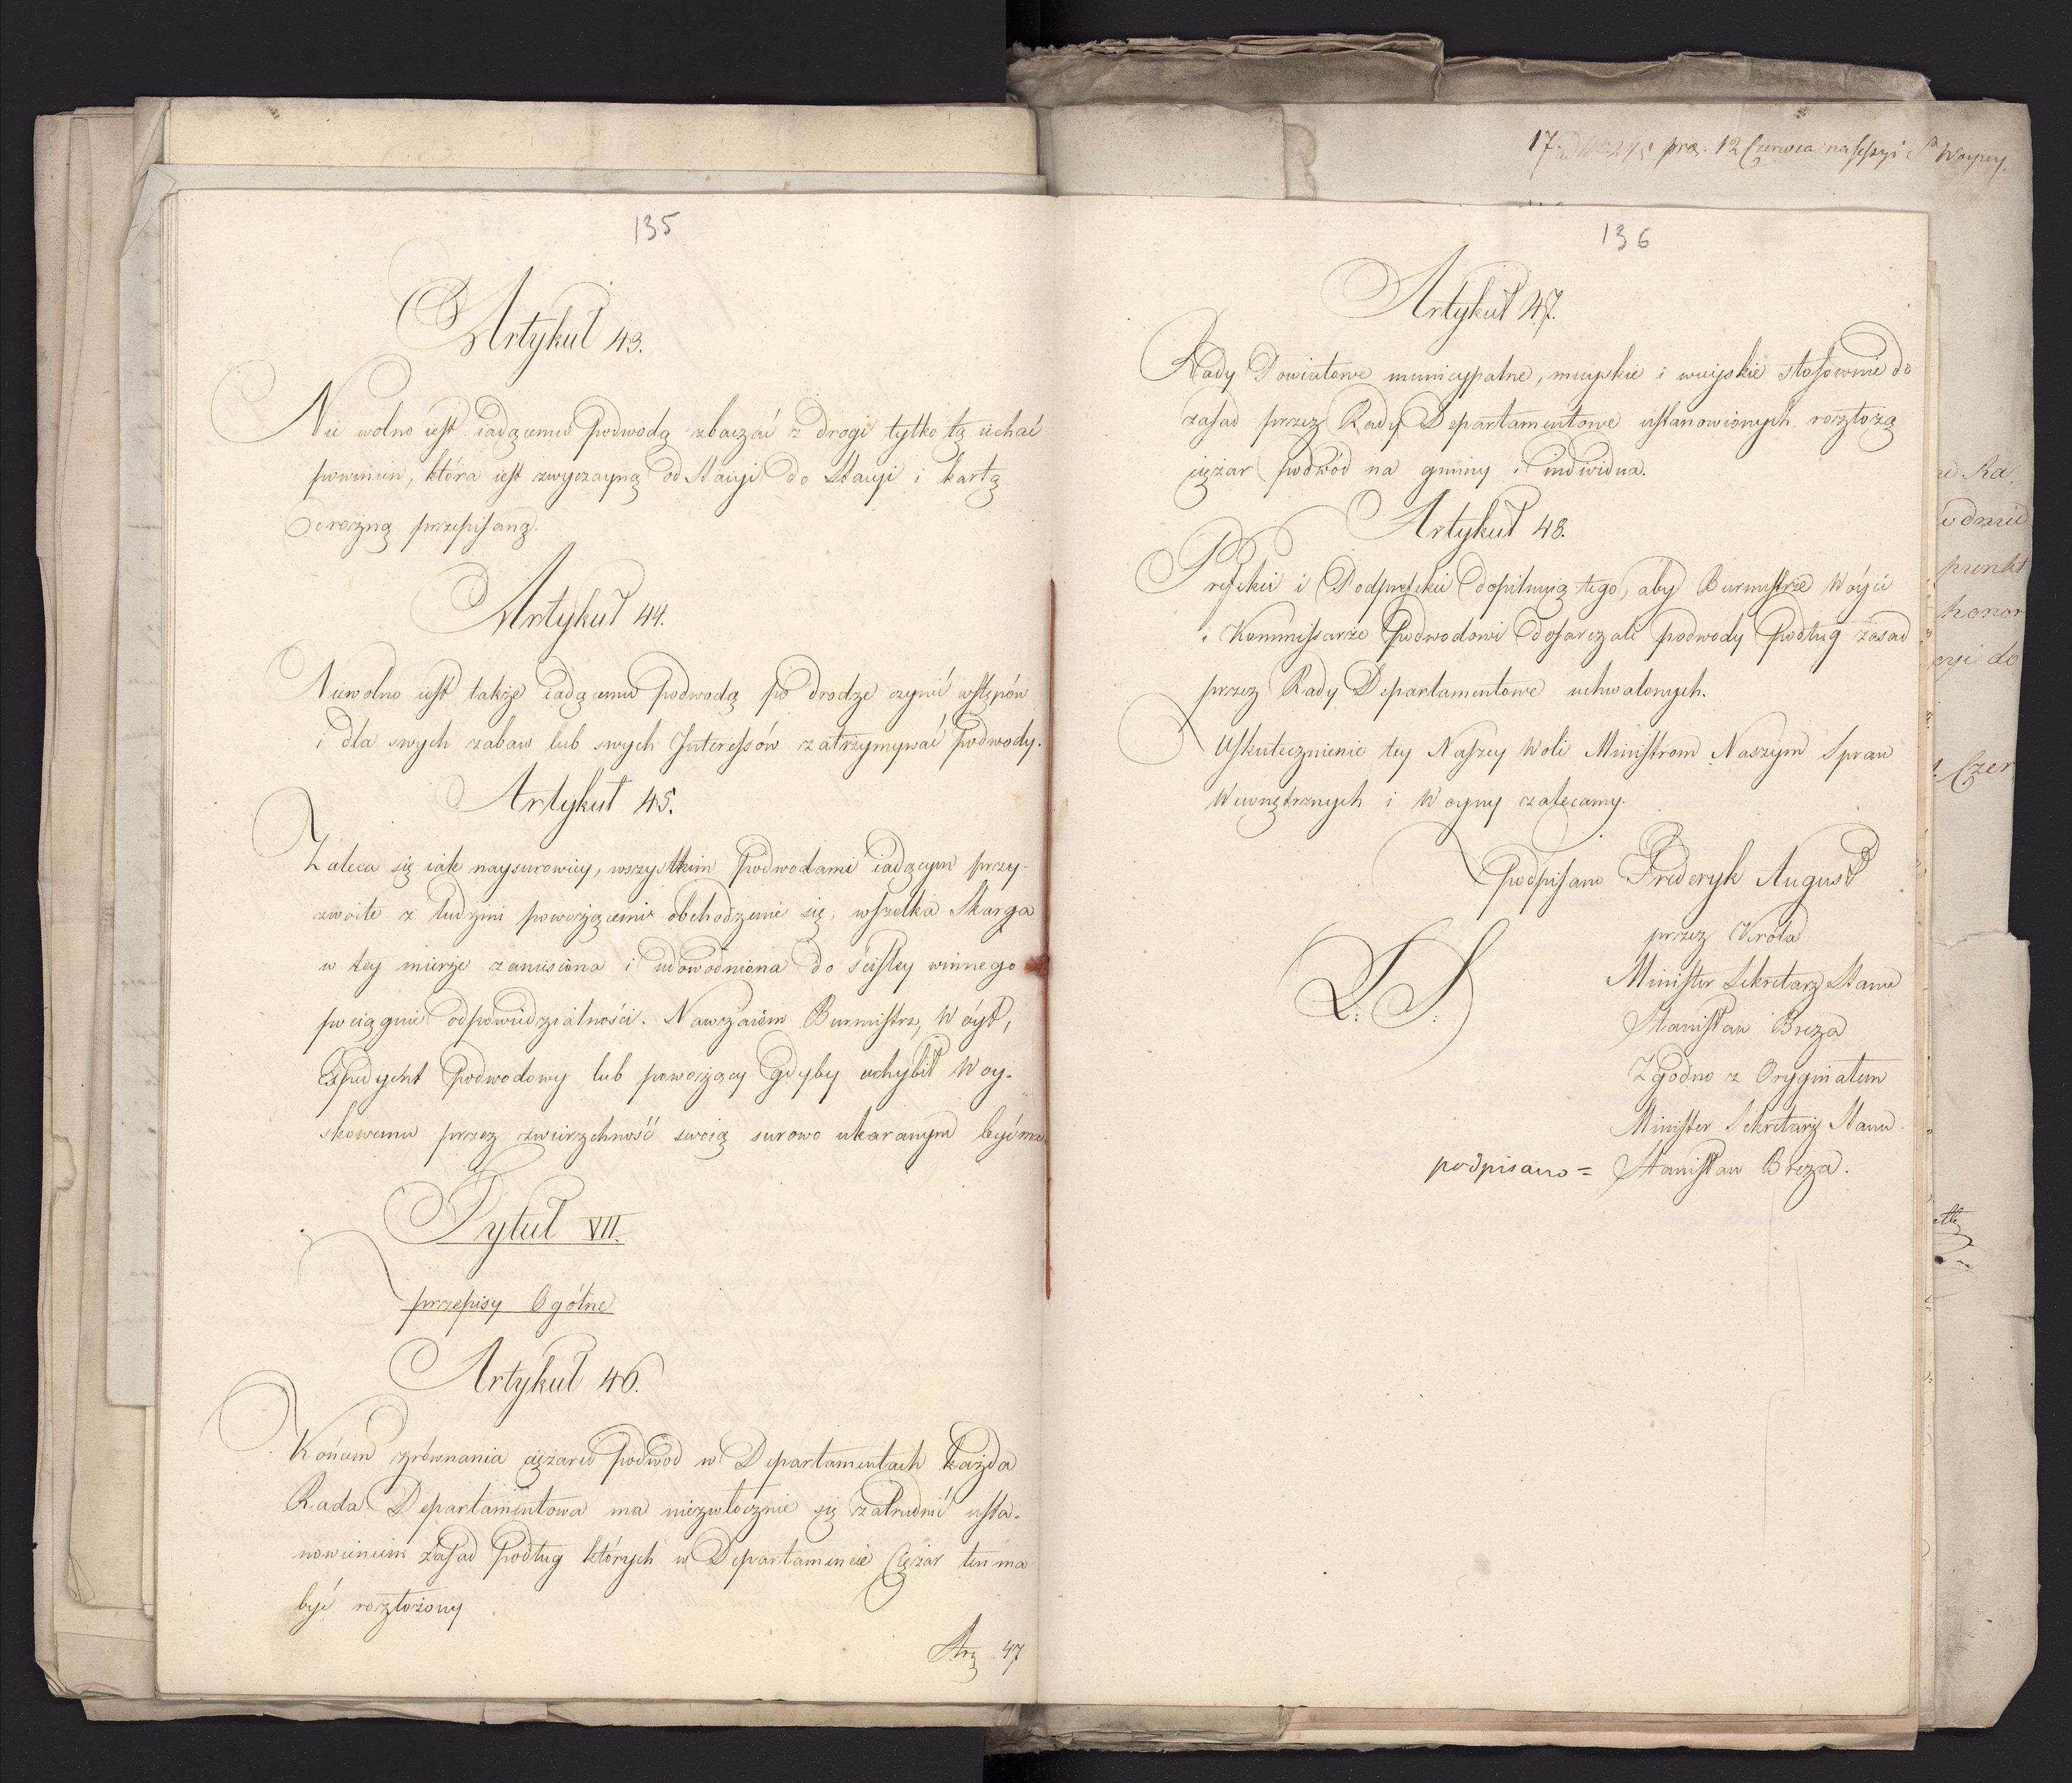 135
Artykuł 43.
Nie wolno iest iadącemu Podwodą zbaczać z drogi tylko tą iechać
powinien, która iest zwyczayną od Stacyi do Stacyi i kartą
drożną przepisaną.
Artykuł 44.
Niewolno iest także iadącemu Podwodą po drodze czynić wstępów
i dla swych zabaw lub swych Interessów zatrzymywać Podwody.
Artykuł 45.
Zaleca się iak naysurowiey, wszystkim Podwodami iadącym przy-
zwoite z ludźmi powożącemi obchodzenie się, wszelka Skarga
w tey mierze zaniesiona i udowodniona do ścisłey winnego
pociągnie odpowiedzialności. Nawzaiem Burmistrz, Wóyt,
Expedycht Podwodowy lub powożący gdyby uchybił Woy-
skowemu przez zwierzchność swoią surowo ukaranym być ma.
Tytuł VII.
przepisy Ogólne
Artykuł 46.
Końcem zrównania ciężaru Podwod w Departamentach każda
Rada Departamentowa ma niezwłocznie się zatrudnić usta-
nowieniem zasad Podług których w Departamencie Ciężar ten ma
być rozłożony
Art 47
17. pra. 12 Czerwca na sessyi Woyny.
136
Artykuł 47.
Rady Powiatowe municypalne, mieyskie i wieyskie stosownie do
zasad przez Rady Departamentowe ustanowionych rozłożą
ciężar podwód na gminy i indiwidua.
Artykuł 48.
Prefekci i Podprefekci dopilnuią tego, aby Burmistrze Wóyci
i Kommissarze Podwodowi dostarczali podwody Podług zasad
przez Rady Departamentowe uchwalonych.
Uskutecznienie tey Naszey Woli Ministrom Naszym Spraw
Wewnętrznych i Woyny zalecamy.
Podpisano Frideryk August
przez Króla
L. S.
Minister Sekretarz Stanu
Stanisław Breza
Zgodno z Oryginałem
Minister Sekretarz Stanu.
podpisano = Stanisław Breza.
punkt
honor
do
Czer